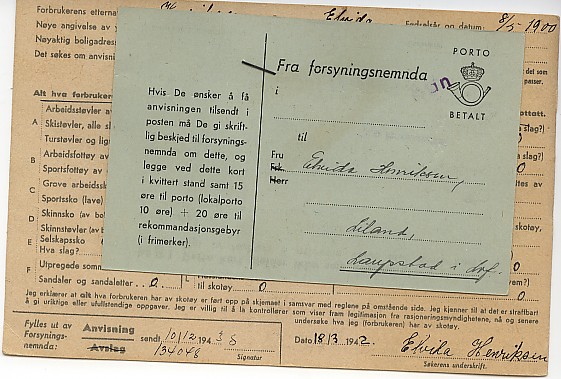 Forbrukerens etternavn Elvida Fødselsår og datum: 8/5 1900
Nye angivelse av
Nåværende boligadresse
Det søkes om anvisning
Alt hva forbrukeren
A
Arbeidsstøvler av
Skistøvler, alle
Turstøvler og
B
Arbeidsfottøy
Sportsfottøy
C
Grove arbeidssko
Sportssko (lave)
D
Skinnsko (av
E
Skinnstøvler av
Selskapssko
Hva slag?
F
Utpregede somm
Sandaler og sandaletter 0
til skotøy 0
PORTO
BETALT
Fra forsyningsnemnda
i
til
Fru
Frk.
Herr
Elvida Henriksen,
Liland,
Laupstad i Lof.
Hvis De ønsker å få
anvisningen tilsendt i
posten må De gi skrift-
lig beskjed til forsynings-
nemnda om dette, og
legge ved dette kort
i kvittert stand samt 15
øre til porto (lokalporto
10 øre) + 20 øre til
rekommandasjonsgebyr
(i frimerker).
Jeg erklærer at alt hva forbrukeren har av skotøy er ført opp på skjemaet i samsvar med reglene på omstående side. Jeg er klar over at det er straffbart
å gi uriktige eller ufullstendige oppgaver. Jeg er villig til å la kontrollører som viser fram legitimasjon fra rasjoneringsmyndighetene, nå og senere
undersøke hva jeg (forbrukeren) har av skotøy.
Fylles ut av
Forsynings-
nemnda:
Anvisning
Avslag
sendt 10/12 1943
134046
Signatur
Dato 18/3 1942
Elvida Henriksen
Søkerens underskrift.